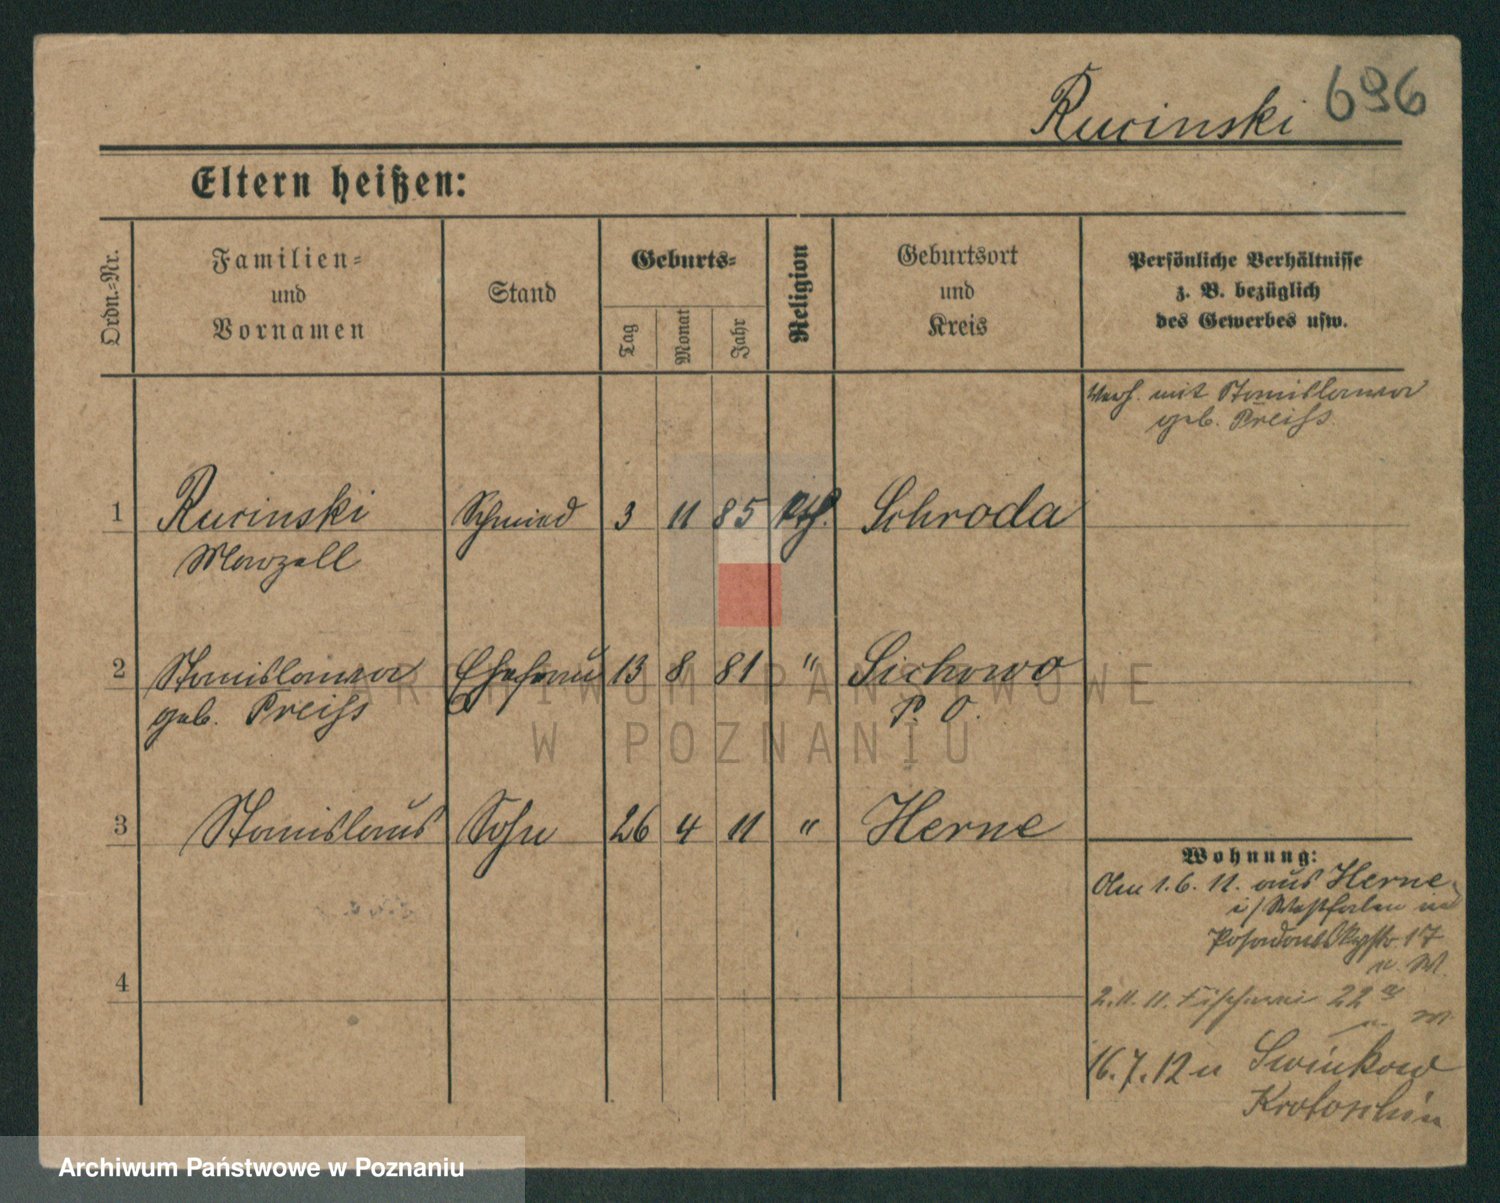 Rucinski 696
Eltern heißen:
Ordn.-Nr.
Familien-
und
Vornamen
Stand
Geburts-
Tag
Monat
Jahr
Religion
Geburtsort
und
Kreis
Persönliche Verhältnisse
z. B. bezüglich
des Gewerbes usw.
Verh. mit Stanislawa
geb. Preiss
1 Rucinski Schmied 3 11 85 kth. Schroda
Marzell
2 Stanislawa Ehefrau 13 8 81 " Sichowo
geb. Preiss P. O.
3 Stanislaus Sohn 26 4 11 " Herne
Wohnung:
1.6.11. aus Herne
i/Westfalen
17
n. W.
4
2.11.11. Fischerei 22
n. W.
16.7.12 n Swinkow
Krotoschin
ARCHIWUM PAŃSTWOWE
W POZNANIU
Archiwum Państwowe w Poznaniu